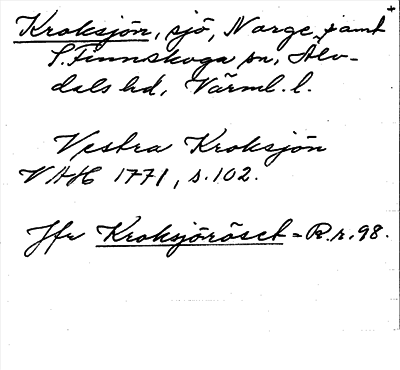 Kroksjön, sjö, Norge, samt
S. Finnskoga sn, Älv-
dals hd, Värml. l.
Vestra Kroksjön
VAH 1771, s. 102.
Jfr Kroksjöröset = R.r. 98.